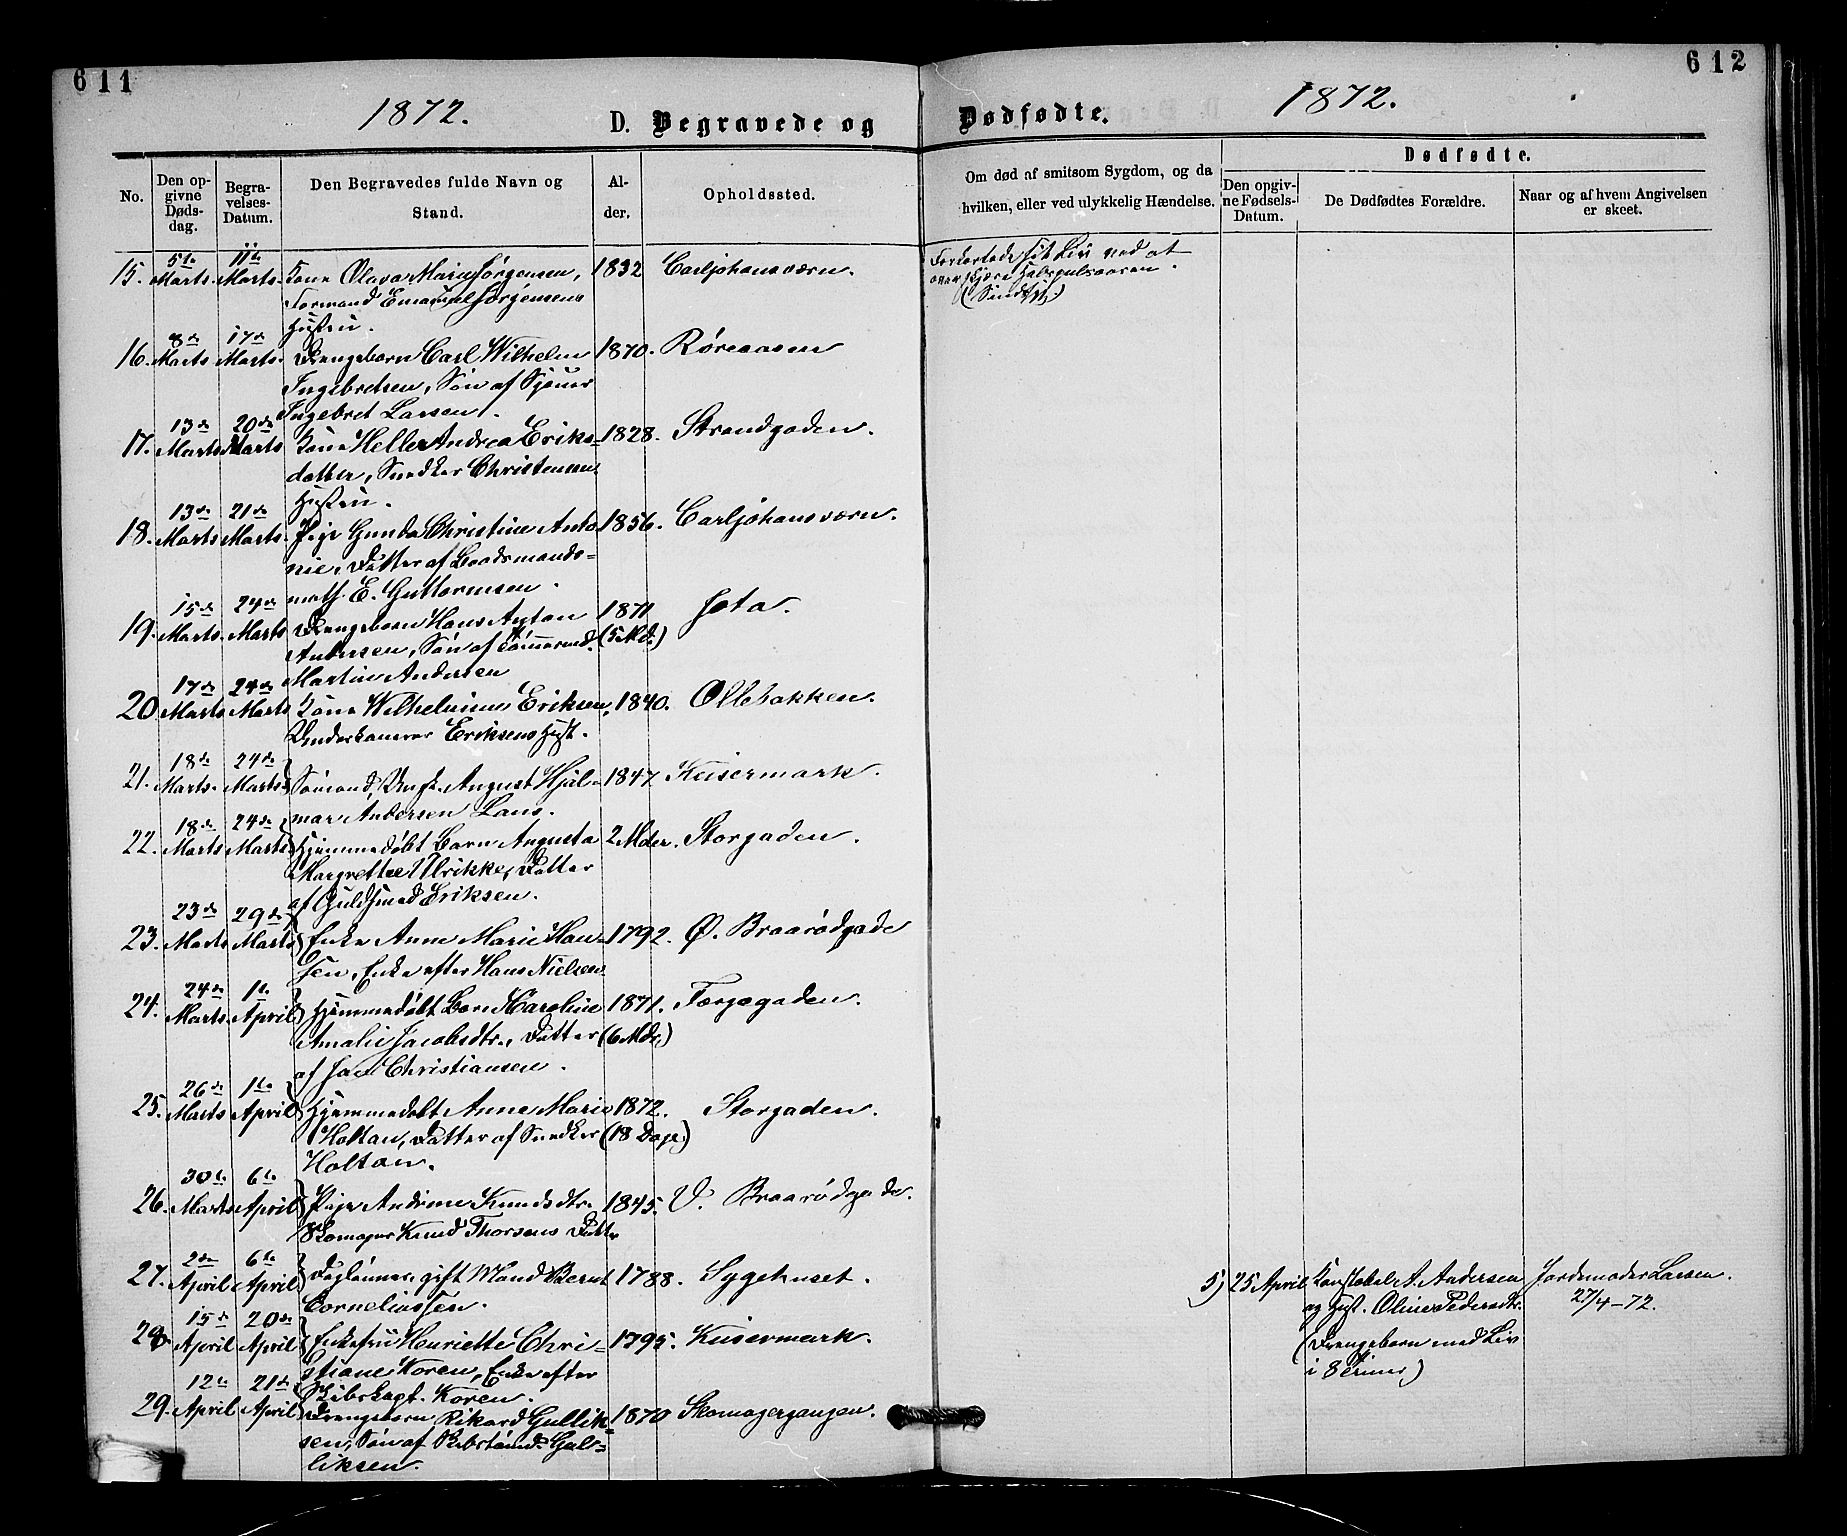 611
612
1872.
1872.
D. Begravede og
Dødfødte.
No.
Den opgivne Dødsdag.
Begravelses-Datum.
Den Begravedes fulde Navn og Stand.
Alder.
Opholdssted.
Om død af smitsom Sygdom, og da hvilken, eller ved ulykkelig Hændelse.
Dødfødte.
Den opgivne Fødsels-Datum.
De Dødfødtes Forældre.
Naar og af hvem Angivelsen er skeet.
15. 5te Marts. 11te Marts. Kone Olava Marie Jørgensen, 1832 Carljohansværn. Forkortede sit Liv ved at
Formand Emanuel Jørgensens overskjære Halspulsaaren.
Hustru. (Sindssyg)
16. 8de Marts. 17de Marts. Drengebarn Carl Wilhelm 1870. Røreaasen
Ingebretsen, Søn af Sjouer
Ingebret Larsen.
17. 13de Marts 20de Marts Kone Helle Andrea Eriks- 1828. Strandgaden.
datter, Snedker Christensens
Hustru.
18. 13de Marts 21de Marts. Pige Gunda Christine Anto- 1856. Carljohansværn.
nie, Datter af Baadsmands-
math. E. Guttormsen.
19. 15de Marts. 24de Marts Drengebarn Hans Anton 1871 Jota.
Andersen, Søn af Tømmermd. (5 Md.)
Martin Andersen
20. 17de Marts 24de Marts Kone Wilhelmine Eriksen, 1840. Ollebakken.
Underkanoner Eriksens Hust.
21. 18de Marts. 24de Marts Sømand, Ungk. August Hjal- 1847 Keisermark.
mar Andersen Lans.
22. 18de Marts 24de Marts Hjemmedøbt Barn Augusta 2 Mder. Storgaden.
Margrethe Ulrikke, Datter
af Guldsmed Eriksen.
23. 23de Marts 29de Marts Enke Anne Marie Han- 1792. Ø. Braarødgade
sen, Enke efter Hans Nielsen
24. 24de Marts. 1te April Hjemmedøbt Barn Karoline 1871. Færgegaden.
Amalie Jacobsdtr., Datter (6 Mdr.)
af Jac Christiansen.
25. 26de Marts 1te April Hjemmedøbt Anne Marie 1872. Storgaden.
Holtan, Datter af Snedker (18 Dage)
Holtan.
26. 30te Marts 6te April Pige Andrine Knudsdtr. 1845. V. Braarødgade.
Skomager Knud Thorsens Datter
27. 2den April 6te April Daglønner, gift Mand Bernt 1788. Sygehuset.
Corneliussen.
5) 25 April Konstabel A. Andersen Jordemoder Larsen.
og Hust. Oline Pedersdtr. 27/4-72.
(Drengebarn med Liv
i 8 Timer)
28. 15de April 20de April Enkefru Henriette Chri- 1795. Keisermark.
stiane Koren, Enke efter
Skibskapt. Koren.
29. 12te April 21de April Drengebarn Rikard Gullik- 1870 Skomagergangen.
sen, Søn af Rebslaad. Gul-
liksen.